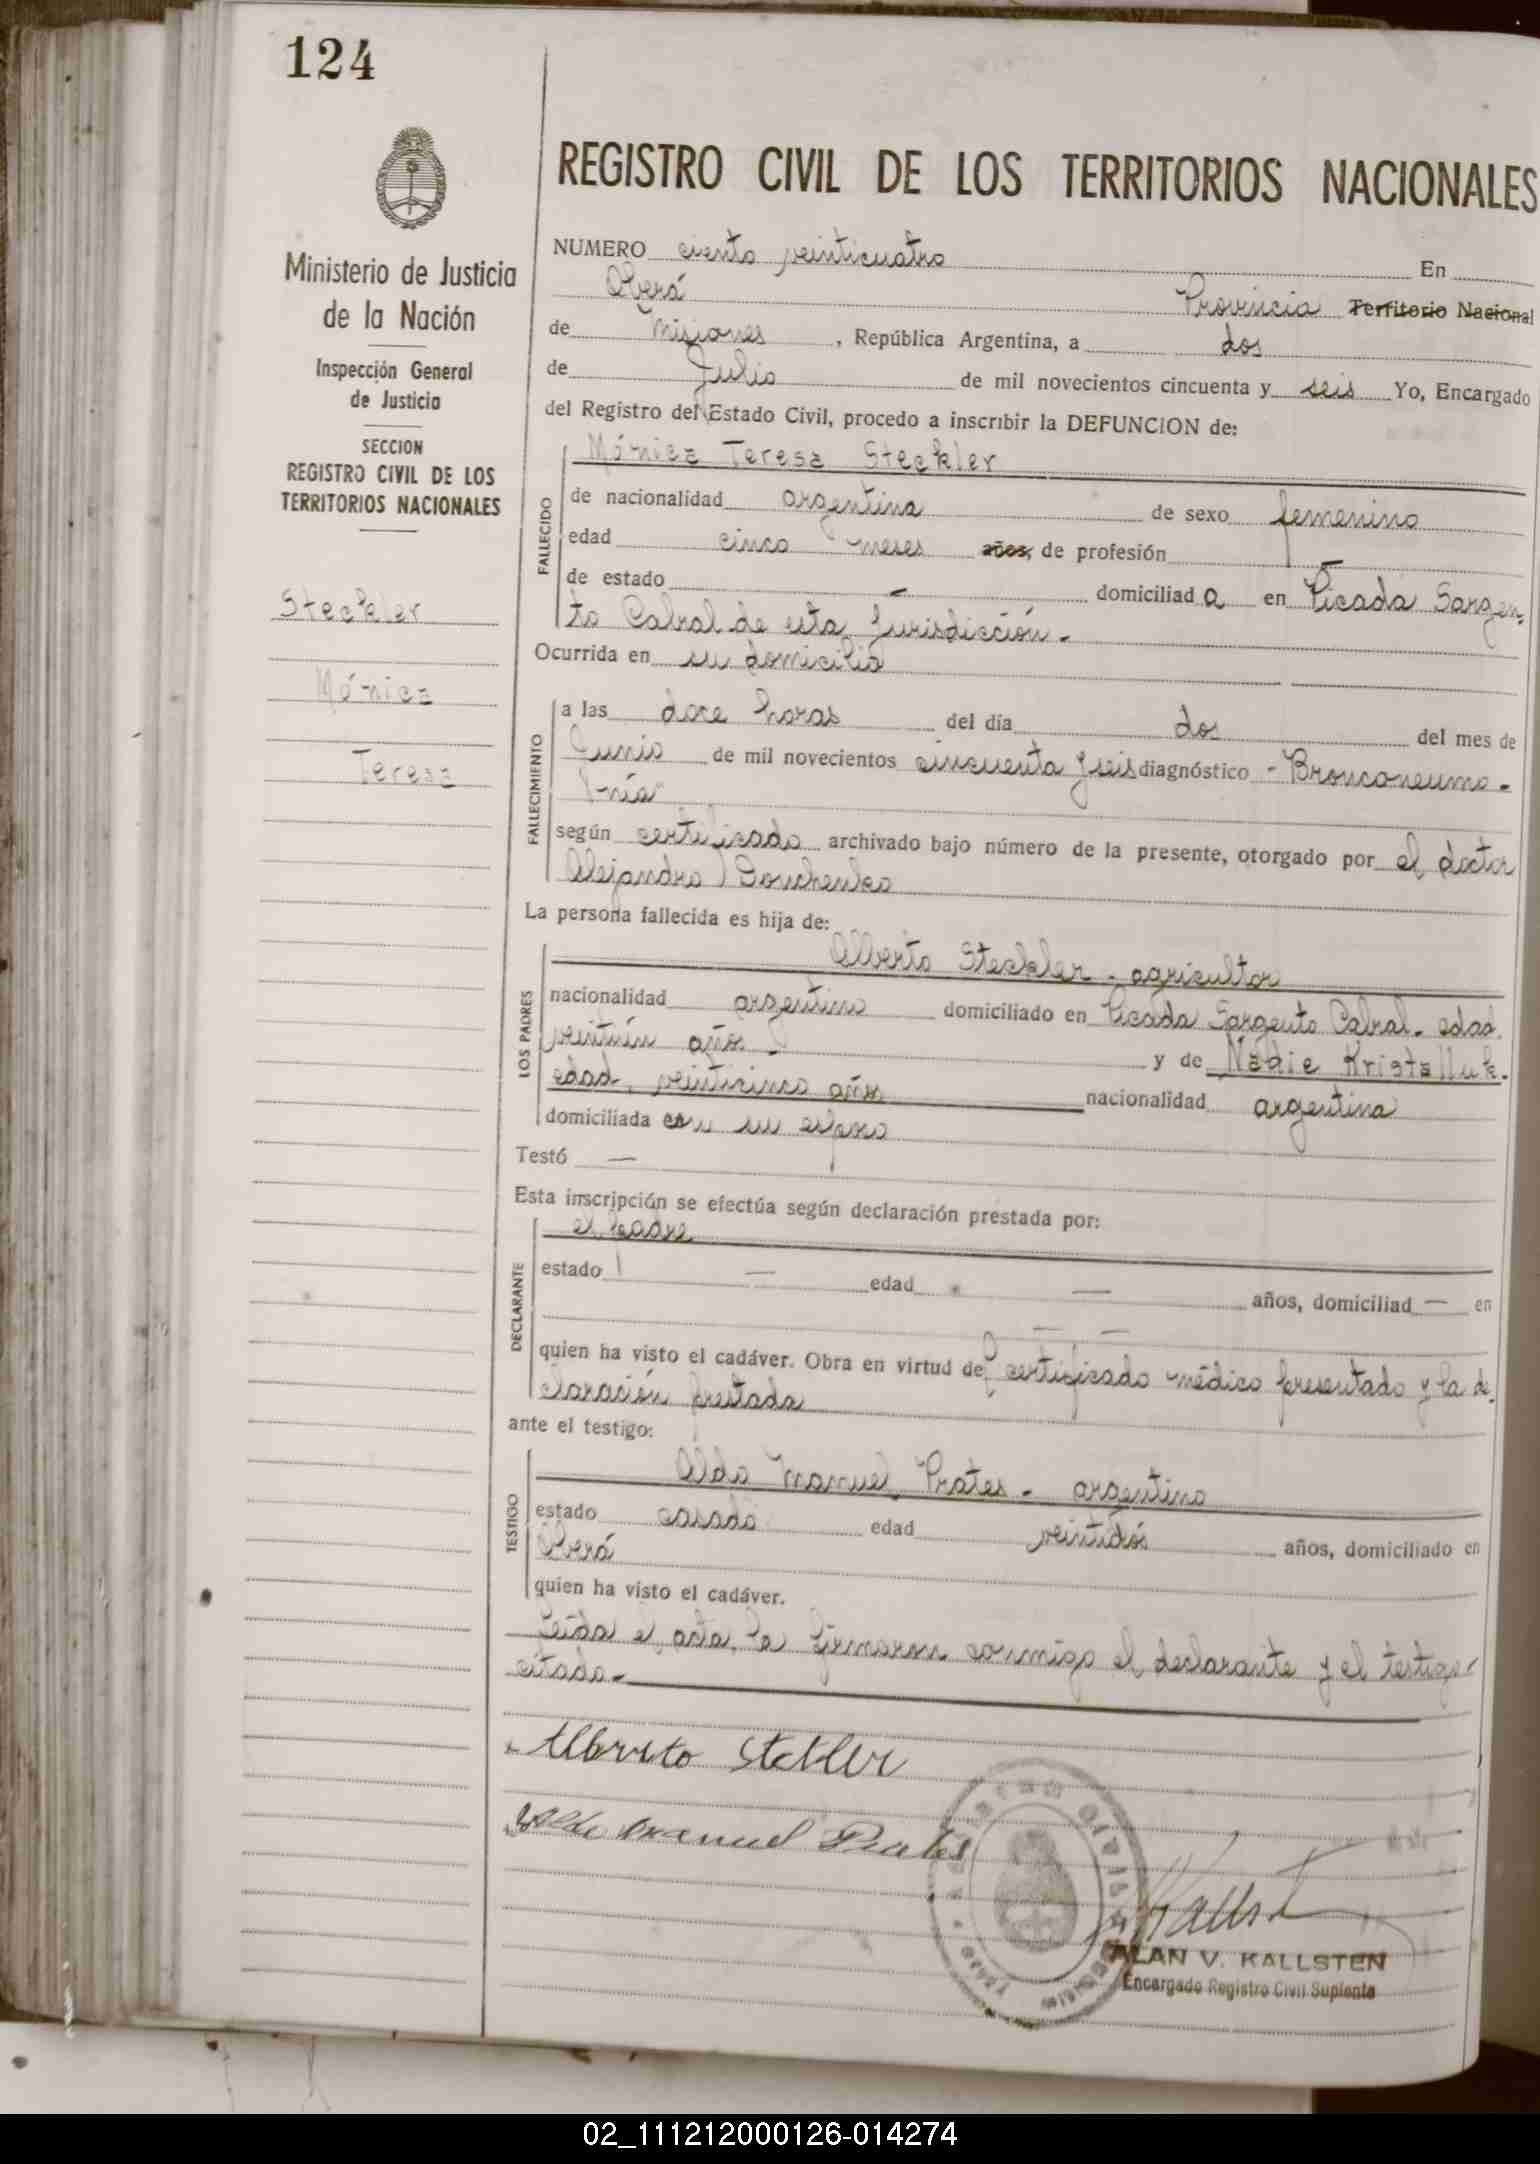 124
REGISTRO CIVIL DE LOS TERRITORIOS NACIONALES
Ministerio de Justicia
de la Nación
Inspección General
de Justicia
SECCION
REGISTRO CIVIL DE LOS
TERRITORIOS NACIONALES
Steckler
Mónica
Teresa
NUMERO ciento veinticuatro En
Oberá Provincia Territorio Nacional
de Misiones, República Argentina, a dos
de Julio de mil novecientos cincuenta y seis Yo, Encargado
del Registro del Estado Civil, procedo a inscribir la DEFUNCION de:
FALLECIDO
Mónica Teresa Steckler
de nacionalidad argentina de sexo femenino
edad cinco meses años, de profesión —
de estado — domiciliad a en Picada Sargen-
to Cabral de esta Jurisdicción.-
Ocurrida en su domicilio
FALLECIMIENTO
a las doce horas del día dos del mes de
Junio de mil novecientos cincuenta y seis diagnóstico - Bronconeumo-
nía
según certificado archivado bajo número de la presente, otorgado por el doctor
Alejandro
La persona fallecida es hija de:
LOS PADRES
Alberto Steckler - agricultor
nacionalidad argentino domiciliado en Picada Sargento Cabral - edad
veintiún años - y de Nadie Kristalluk.
edad, veinticinco años nacionalidad argentina
domiciliada con su esposo
Testó —
Esta inscripción se efectúa según declaración prestada por:
DECLARANTE
el padre
estado — edad — años, domiciliad — en
— —
quien ha visto el cadáver. Obra en virtud del certificado médico presentado y la de-
claración prestada
ante el testigo:
TESTIGO
Aldo Manuel Prates - argentino
estado casado edad veintidós años, domiciliado en
Oberá
quien ha visto el cadáver.
Leída el acta, la firmaron conmigo el declarante y el testigo
citado.-
Alberto Stekler
Aldo Manuel Prates
Kallsten
ALAN V. KALLSTEN
Encargado Registro Civil Suplente
02_111212000126-014274